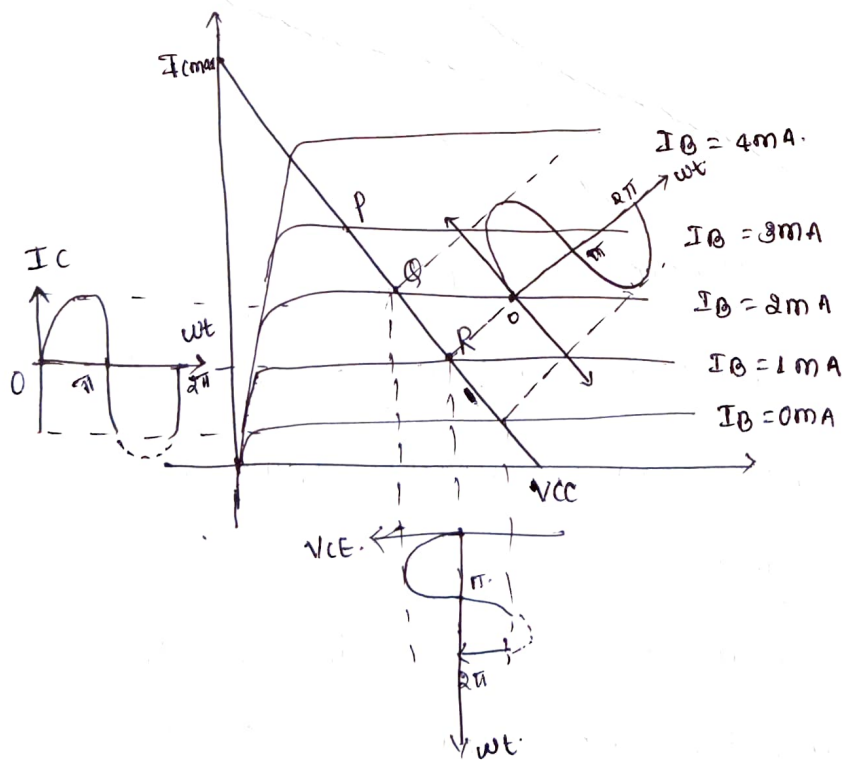 ICmax
IB = 4mA.
wt
2π
P
π
IB = 3mA
IC
Q
IB = 2mA
wt
0
R
IB = 1mA
0
π
2π
IB = 0mA
VCC
VCE.
π.
2π
wt.